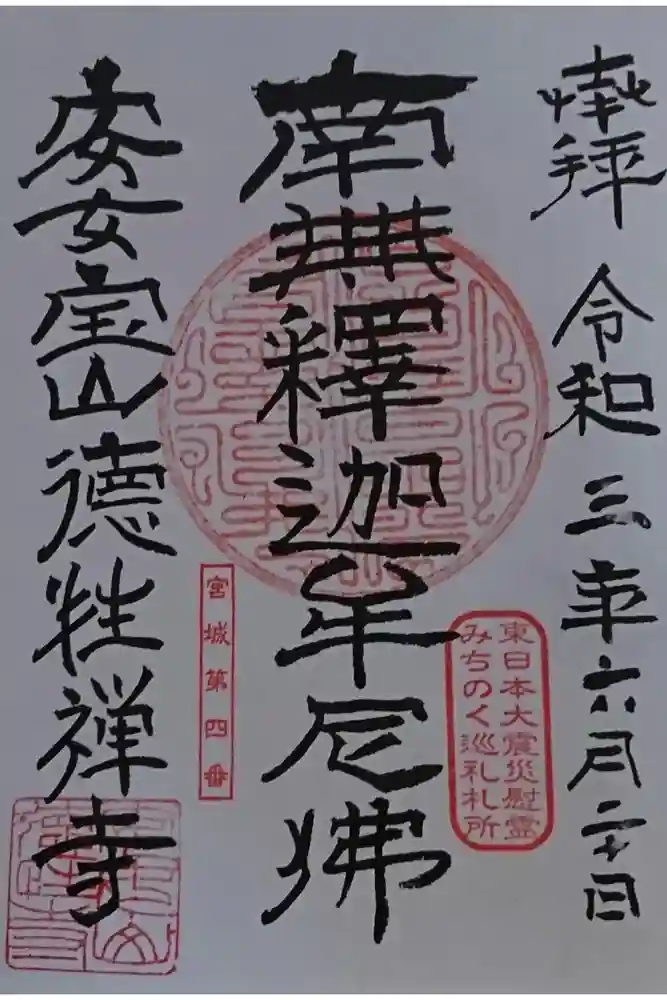 奉拝 令和三年六月二十日
南無釋迦牟尼佛
東日本大震災慰霊
みちのく巡礼札所
宮城第四番
安女宝山徳性禅寺